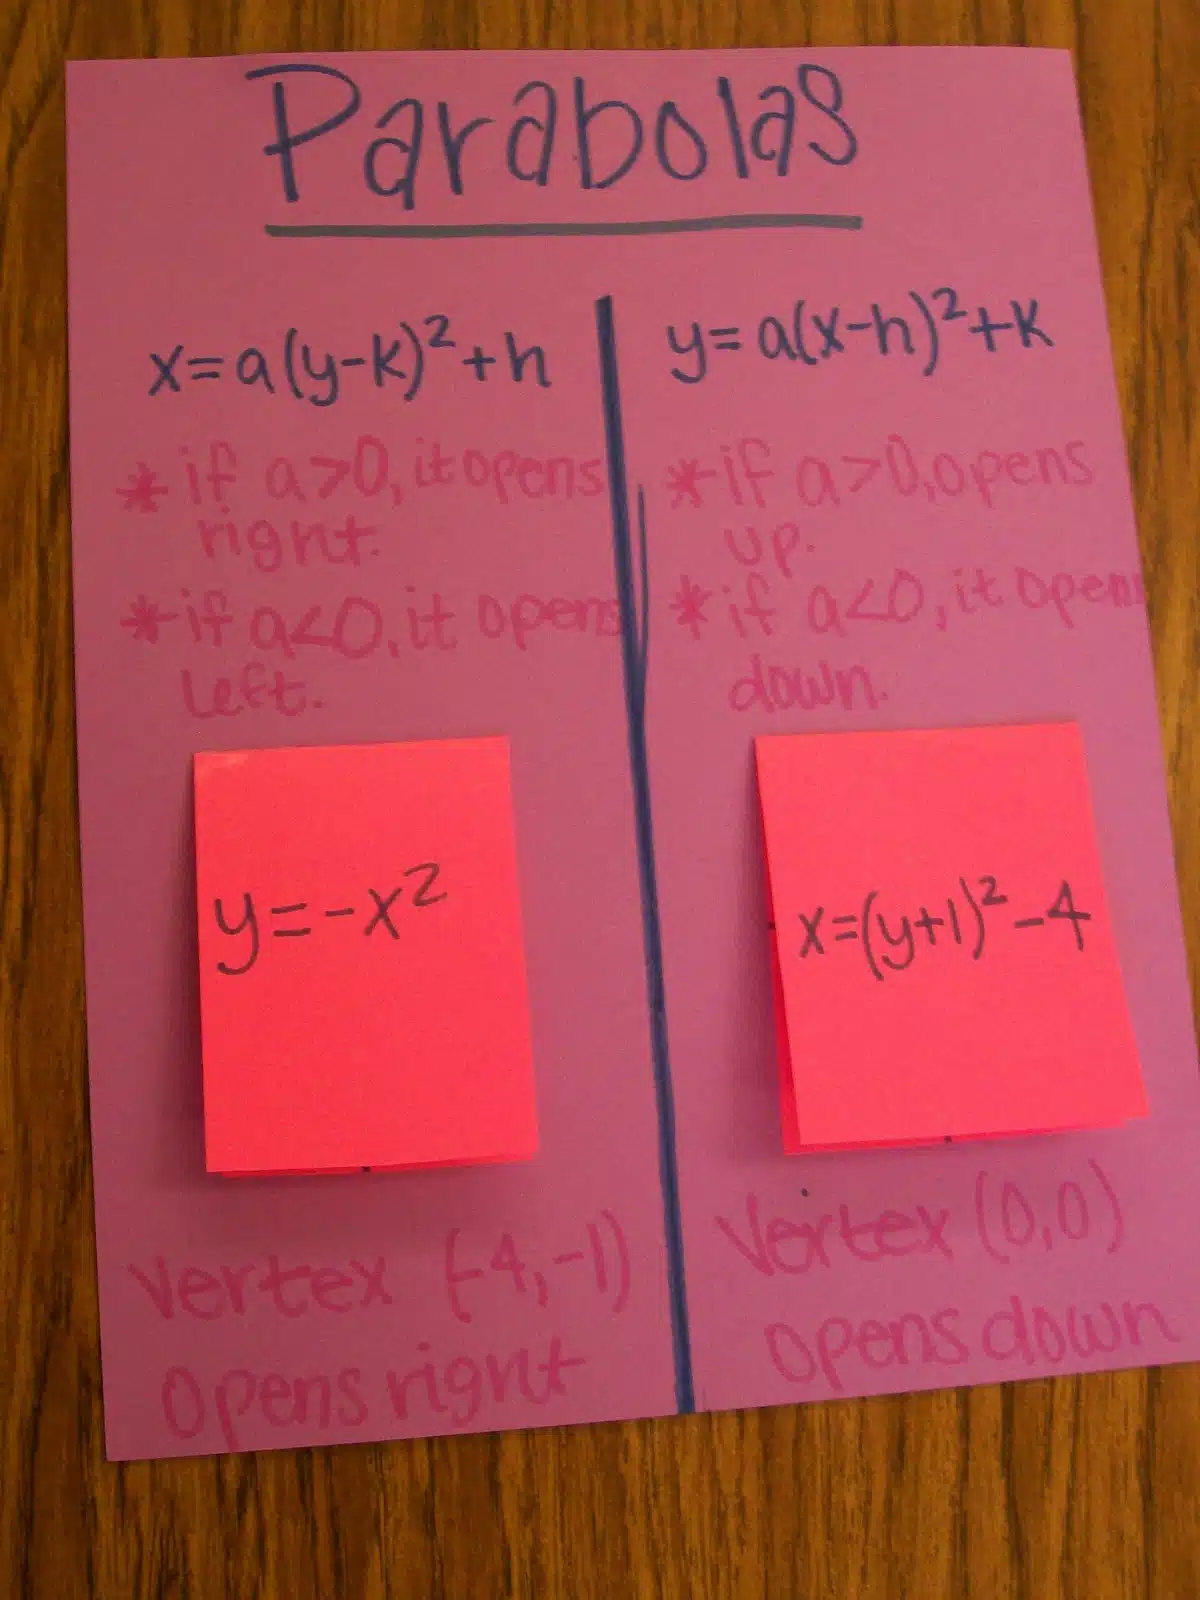 Parabolas
x=a(y-k)²+h
* if a>0, it opens
right.
* if a<0, it opens
left.
y=-x²
Vertex (-4,-1)
Opens right
y=a(x-h)²+k
* if a>0, opens
up.
* if a<0, it opens
down.
x=(y+1)²-4
Vertex (0,0)
Opens down